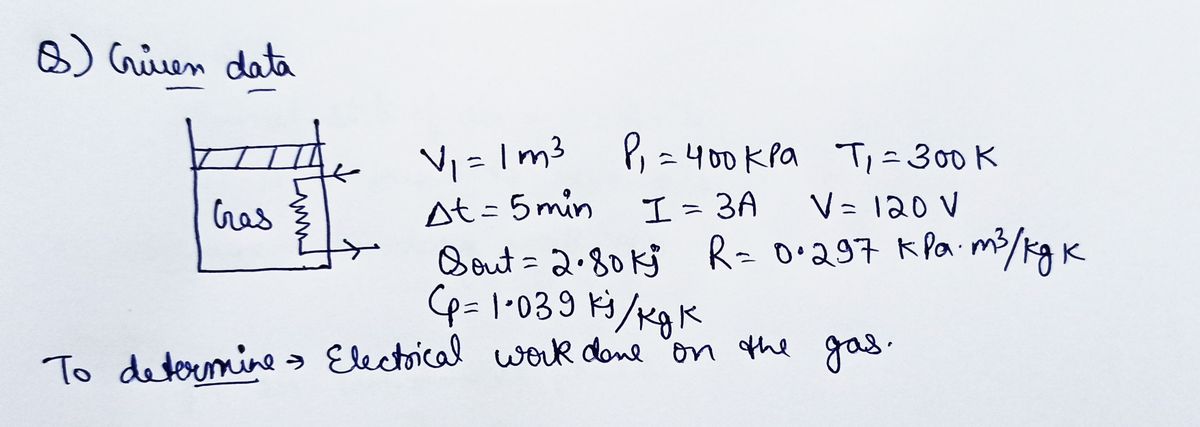 Q) Given data
V₁ = 1 m³ P₁ = 400 KPa T₁ = 300 K
Gas Δt = 5 min I = 3A V = 120 V
Qout = 2.80 Kj R = 0.297 KPa·m³/Kg K
Cp = 1.039 Kj/Kg K
To determine → Electrical work done on the gas.